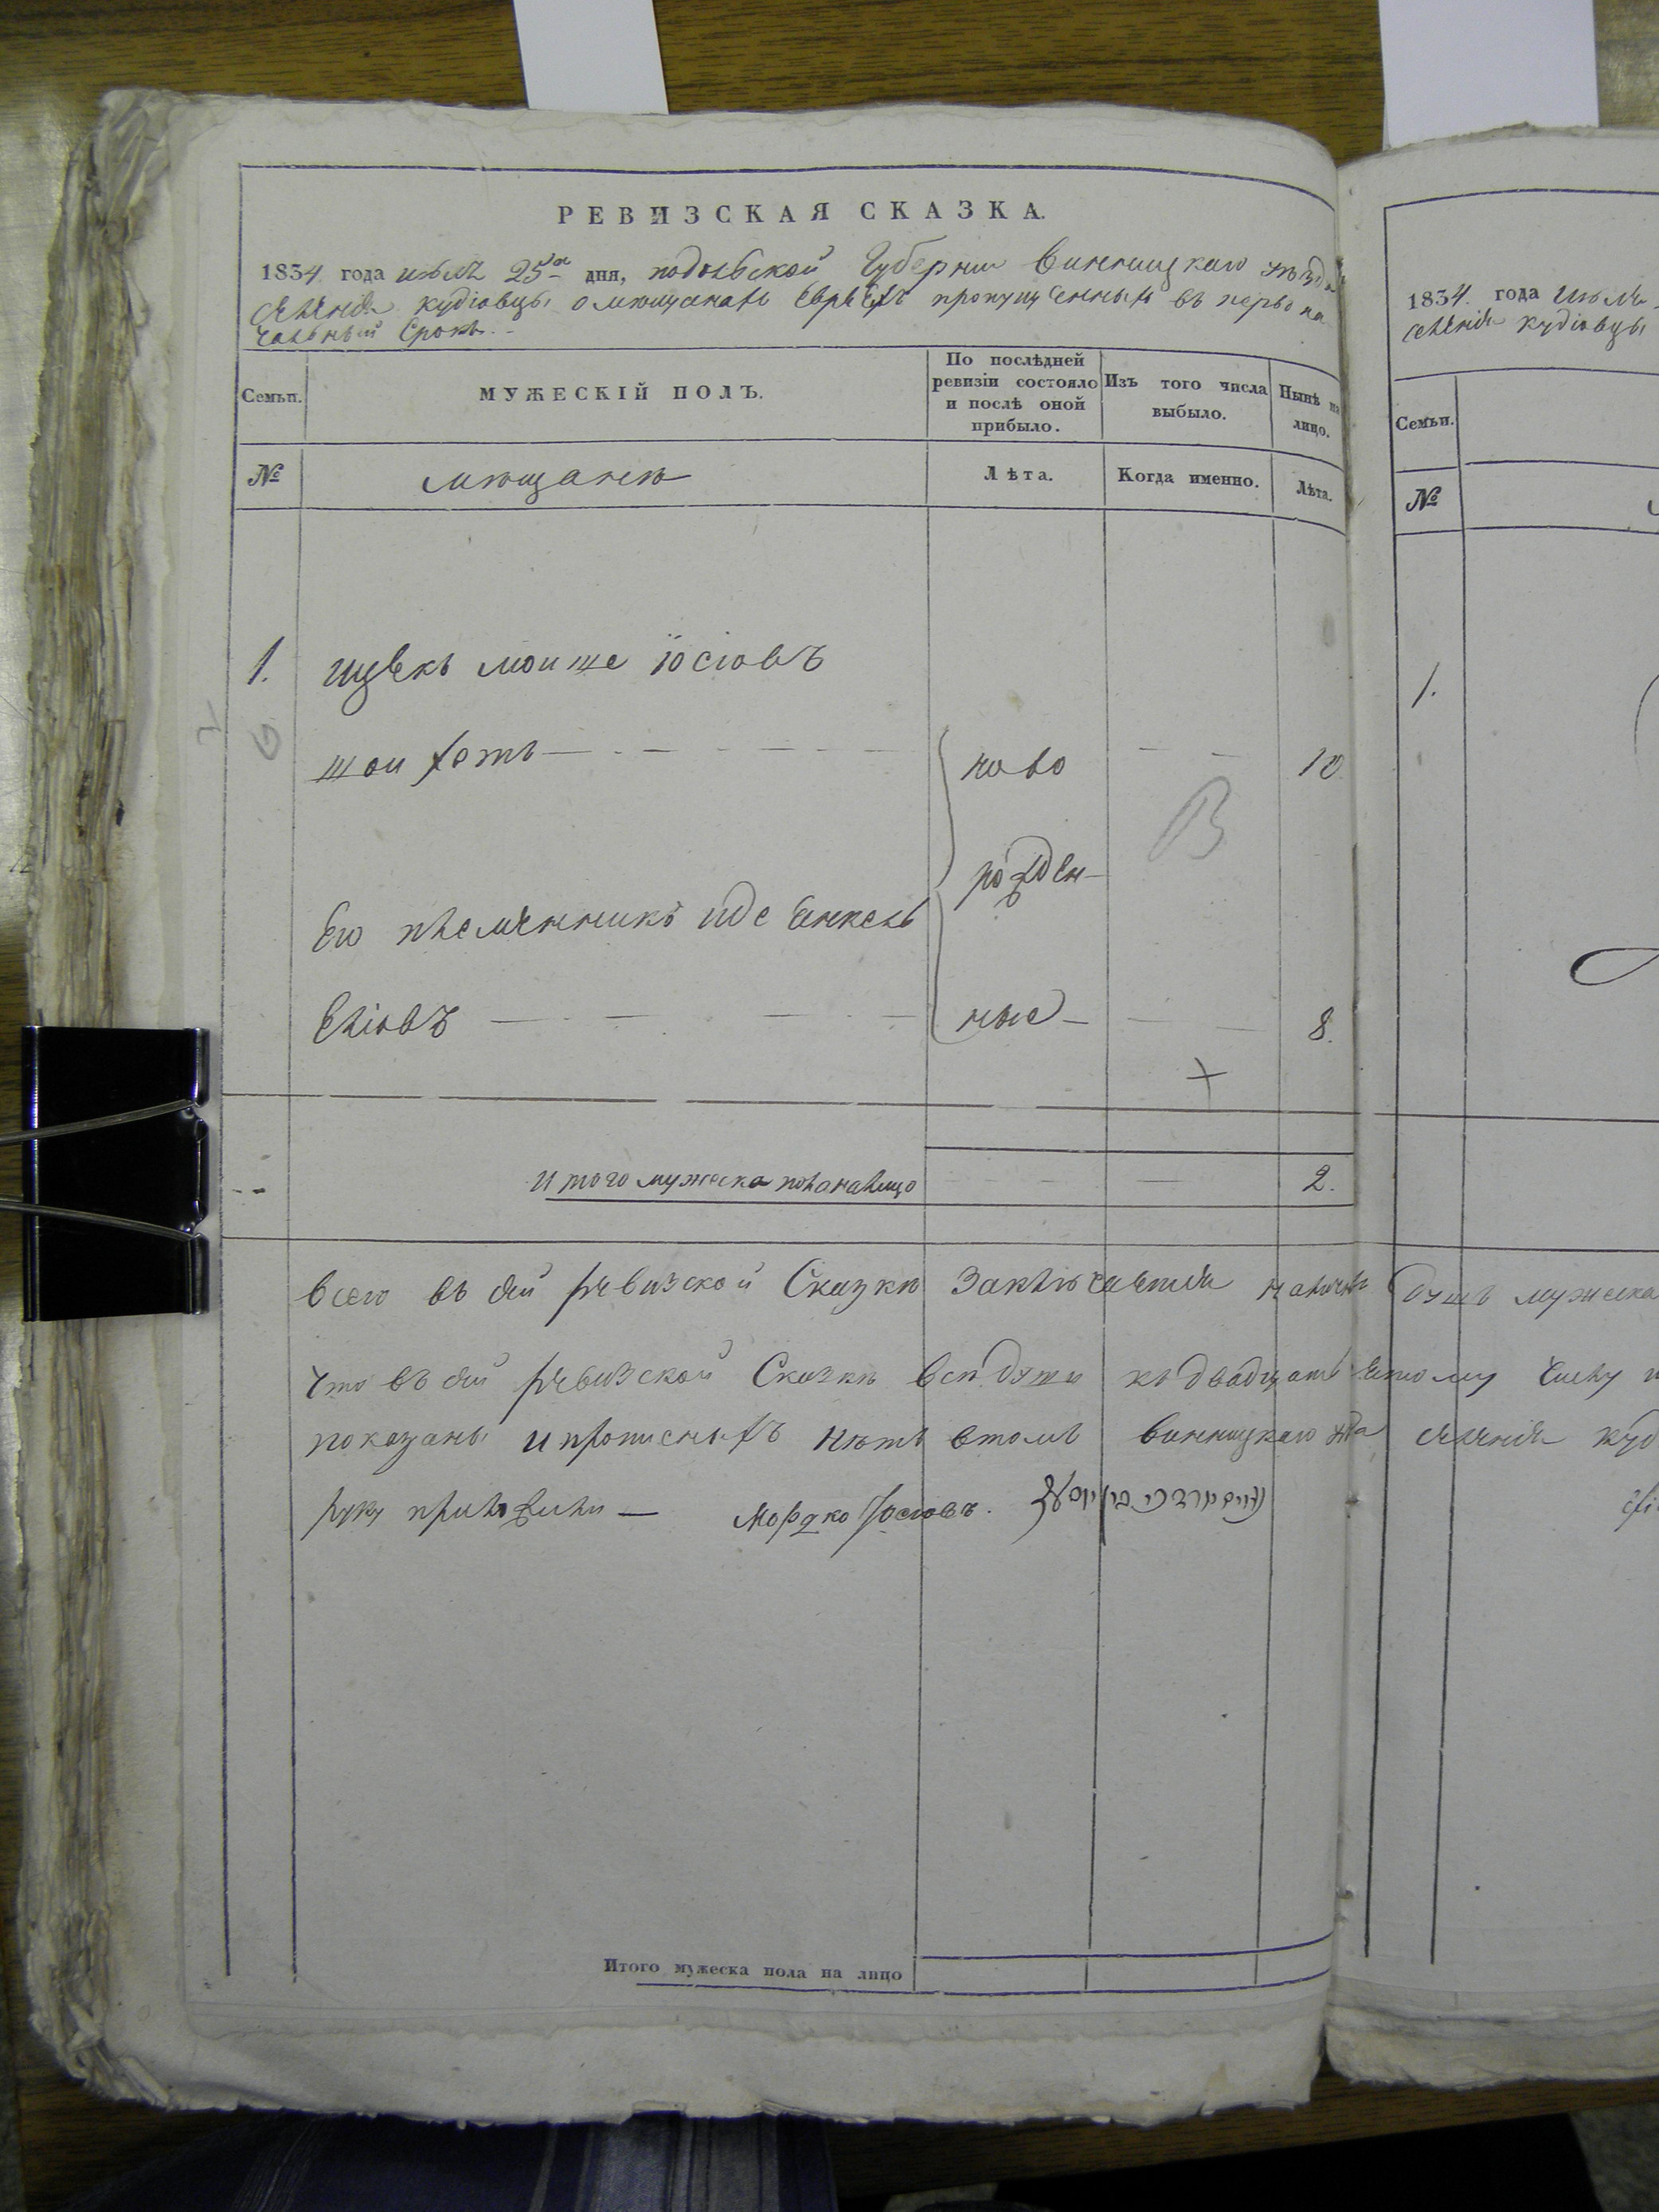 РЕВИЗСКАЯ СКАЗКА.
1834 года июля 25го дня, подольской Губернии Винницкаго уезда
селения кудіовцы о мещанахъ Евреяхъ пропущенныхъ въ перво на
чальный Срокъ. -
Семьи.
МУЖЕСКІЙ ПОЛЪ.
По послѣдней ревизіи состояло и послѣ оной прибыло.
Изъ того числа выбыло.
Нынѣ на лицо.
№
мещане
Лѣта.
Когда именно.
Лѣта.
1. ицекъ мошке іосіовъ
ново 10
В
рожден-
Его племенникъ иде Енкель
Еліовъ ные 8.
+
итого мужеска пола налицо 2.
всего въ сей ревизской Сказке Заключается налич душъ мужеска
что въ сей ревизской Сказке все души къ двадцать ятому числу
показаны и прописныхъ нетъ втомъ винницкаго уезда селения куд
руку приложили — Мордко Іосіовъ.
Итого мужеска пола на лицо
1834. года июля
селения кудіовцы
Семьи.
№
1.